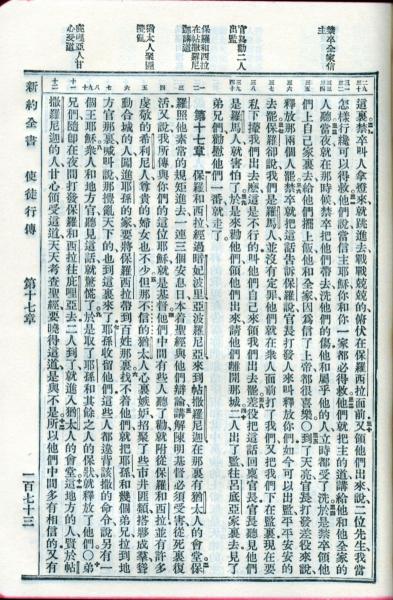 禁卒全家信主
官長勸二人出監
保羅和西拉在帖撒羅尼迦講道
猶太人聚匪搗亂
庇哩亞人甘心受道
這裏禁卒叫人拿燈來就跳進去戰戰兢兢的俯伏在保羅西拉面前又領他們出來說二位先生我當
怎樣行纔可以得救他們說當信主耶穌你和你一家都必得救他們就把主的道講給他和他全家的
人聽當夜就在那時候禁卒把他們帶去洗他們的傷他和屬乎他的人立時都受了洗於是禁卒領他
們上自己家裏去給他們擺上飯他和全家因爲信了上帝都很喜樂○到了天亮官長打發差役來說
釋放那兩個人罷禁卒就把這話告訴保羅說官長打發人來叫釋放你們如今可以出監平平安安的
去罷保羅卻說我們是羅馬人並沒有定罪他們就在衆人面前打了我們又把我們下在監裏現在要
私下攆我們出去麼這是不行的叫他們自己來領我們出去罷差役把這話回稟官長官長聽見他們
是羅馬人就害怕了於是來勸他們領他們出來請他們離開那城二人出了監往呂底亞家裏去見了
弟兄們勸慰他們一番就走了
第十七章 保羅和西拉經過暗妃波里亞波羅尼亞來到帖撒羅尼迦在那裏有猶太人的會堂保
羅照他素常的規矩進去一連三個安息日本着聖經與他們辯論講解陳明基督必須受害從死裏復
活又說我所傳與你們的這位耶穌就是基督他們中間有些人聽了勸就附從保羅和西拉並有許多
虔敬的希利尼人尊貴的婦女也不少但那不信的猶太人心裏嫉妬招聚了些市井匪類搭夥成羣聳
動合城的人闖進耶孫的家要將保羅西拉帶到百姓那裏找不着他們就把耶孫和幾個弟兄拉到地
方官那裏喊叫說那攪亂天下的也到這裏來了耶孫收留他們這些人都違背該撒的命令說另有一
個王耶穌衆人和地方官聽見這話就驚慌了於是取了耶孫和其餘之人的保狀就釋放了他們○弟
兄們隨卽在夜間打發保羅和西拉往庇哩亞去二人到了就進入猶太人的會堂這地方的人賢於帖
撒羅尼迦的人甘心領受這道天天考查聖經要曉得這道是與不是所以他們中間多有相信的又有
新約全書 使徒行傳 第十七章 一百七十三